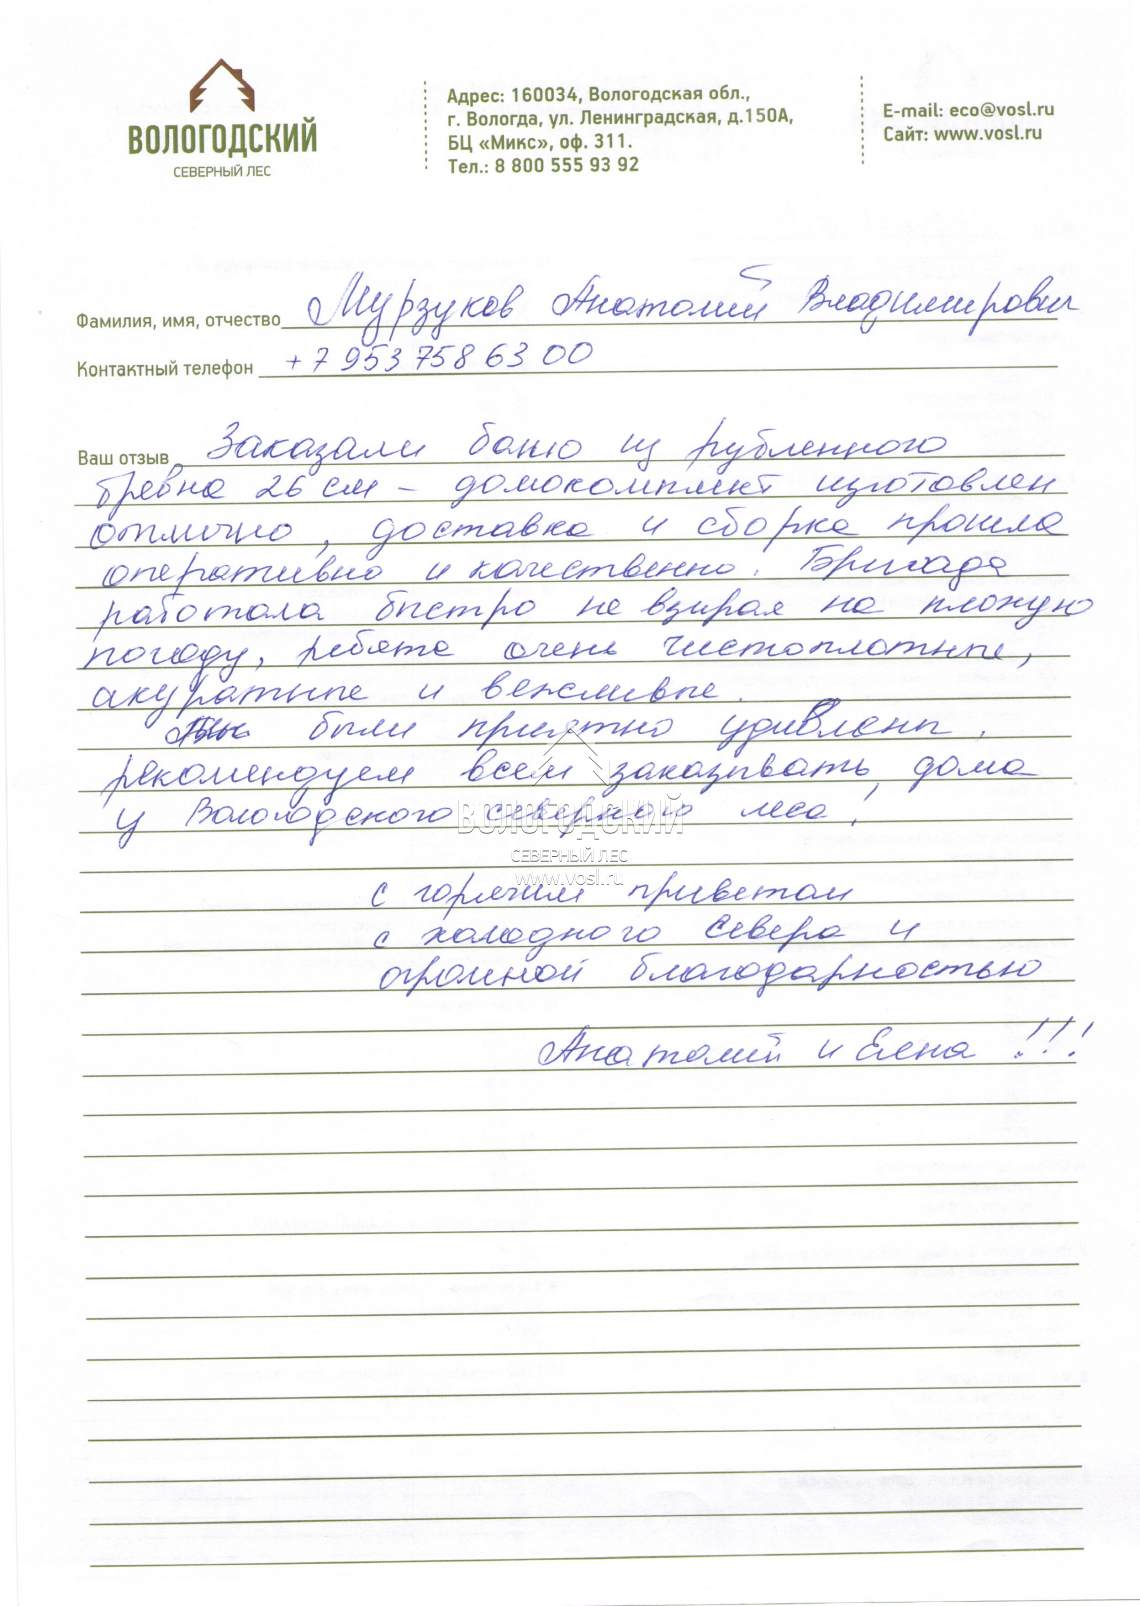 ВОЛОГОДСКИЙ
СЕВЕРНЫЙ ЛЕС
Адрес: 160034, Вологодская обл.,
г. Вологда, ул. Ленинградская, д.150А,
БЦ «Микс», оф. 311.
Тел.: 8 800 555 93 92
E-mail: eco@vosl.ru
Сайт: www.vosl.ru
Фамилия, имя, отчество Мурзуков Анатолий Владимирович
Контактный телефон +7 953 758 63 00
Ваш отзыв Заказали баню из рубленного
бревна 26 см – домокомплект изготовлен
отлично, доставка и сборка прошла
оперативно и качественно. Бригада
работала быстро не взирая на плохую
погоду, ребята очень чистоплотные,
акуратные и вежливые.
были приятно удивлены,
рекомендуем всем заказывать дома
у Вологодского северного леса!
ВОЛОГОДСКИЙ
СЕВЕРНЫЙ ЛЕС
www.vosl.ru
с горячим приветом
с холодного Севера и
огромной благодарностью
Анатолий и Елена !!!